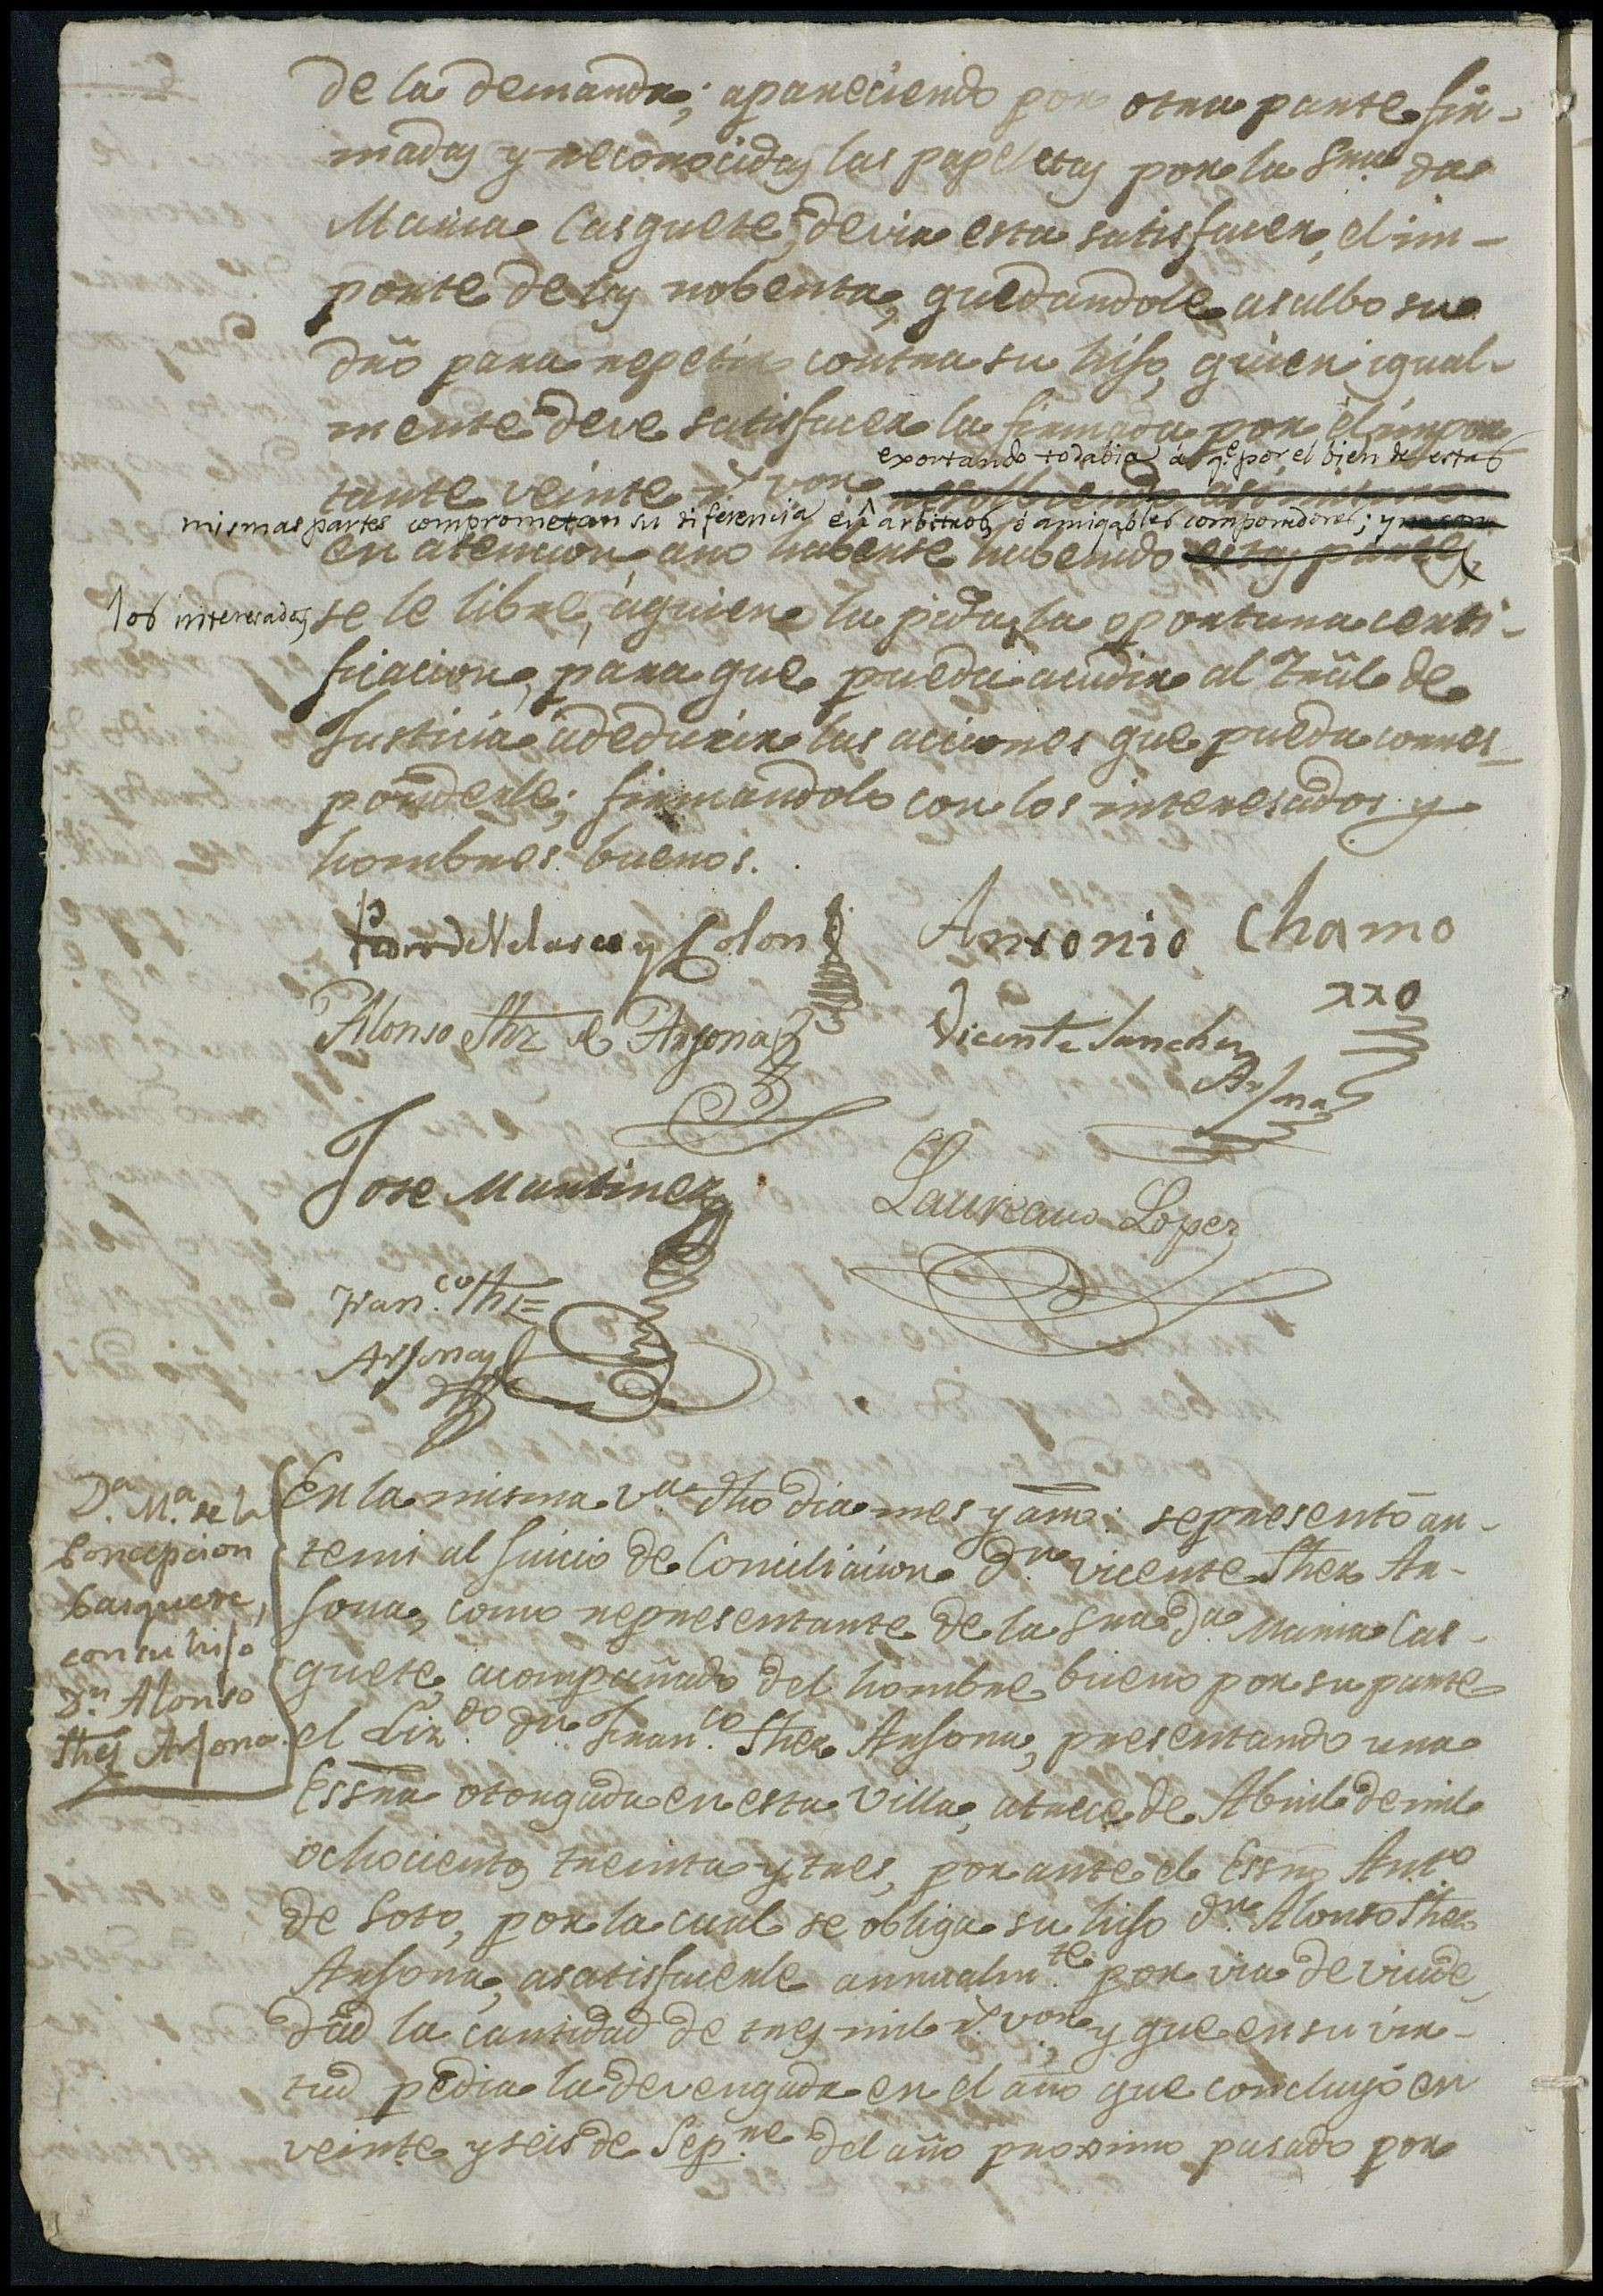 de la demanda; apareciendo por otra parte fir-
madas y reconocidas las papeletas por la Sra. Da.
Maria Casquete, devia esta satisfacer, el im-
porte de las nobenta, quedandole asalbo su
dro para repetir contra su hijo, quien igual-
mente deve satisfacer la firmada por él impor
exortando todabia á qe. por el bien de estas
tante veinte rs. von.
mismas partes comprometan su diferencia en arbitros, ó amigables componedores; y
en atencion ano haberse habenido estas partes,
los interesados,
se le libre, aquien la pida, la oportuna certi-
ficacion, para que pueda acudir al Tral de
Justicia adeducir las acciones que pueda corres-
ponderle; firmandolo con los interesados y
hombres buenos.
Pedro de Velasco y Colon
Antonio Chamo
rro
Alonso Shz de Arjona
Vicente Sanchez
Arjona
Jose Martinez
Laureano Lopez
Fran.co Shz=
Arjona
Da. Ma. de la
Concepcion
Casquete,
con su hijo
Dn. Alonso
Shez Arjona.
En la misma va. dho dia mes y año: sepresentó an-
temi al juicio de Conciliacion Dn. Vicente Shez Ar-
jona, como representante de la Sra. Da. Maria Cas-
quete, acompañado del hombre bueno por su parte
el Liz.do dn. Fran.co Shez Arjona, presentando una
Essra otorgada en esta Villa, atrece de Abril de mil
ochocientos treinta y tres, por ante el Essno Anto.
de Soto, por la cual se obliga su hijo dn. Alonso Shez
Arjona, asatisfacerle annualm.te por via de viude
dad la cantidad de tres mil rs. von. y que en su vir-
tud pedia la devengada en el año que concluyó en
veinte y seis de Sep.re del año proximo pasado por